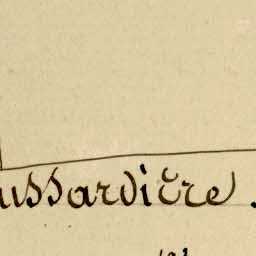 ussardière.